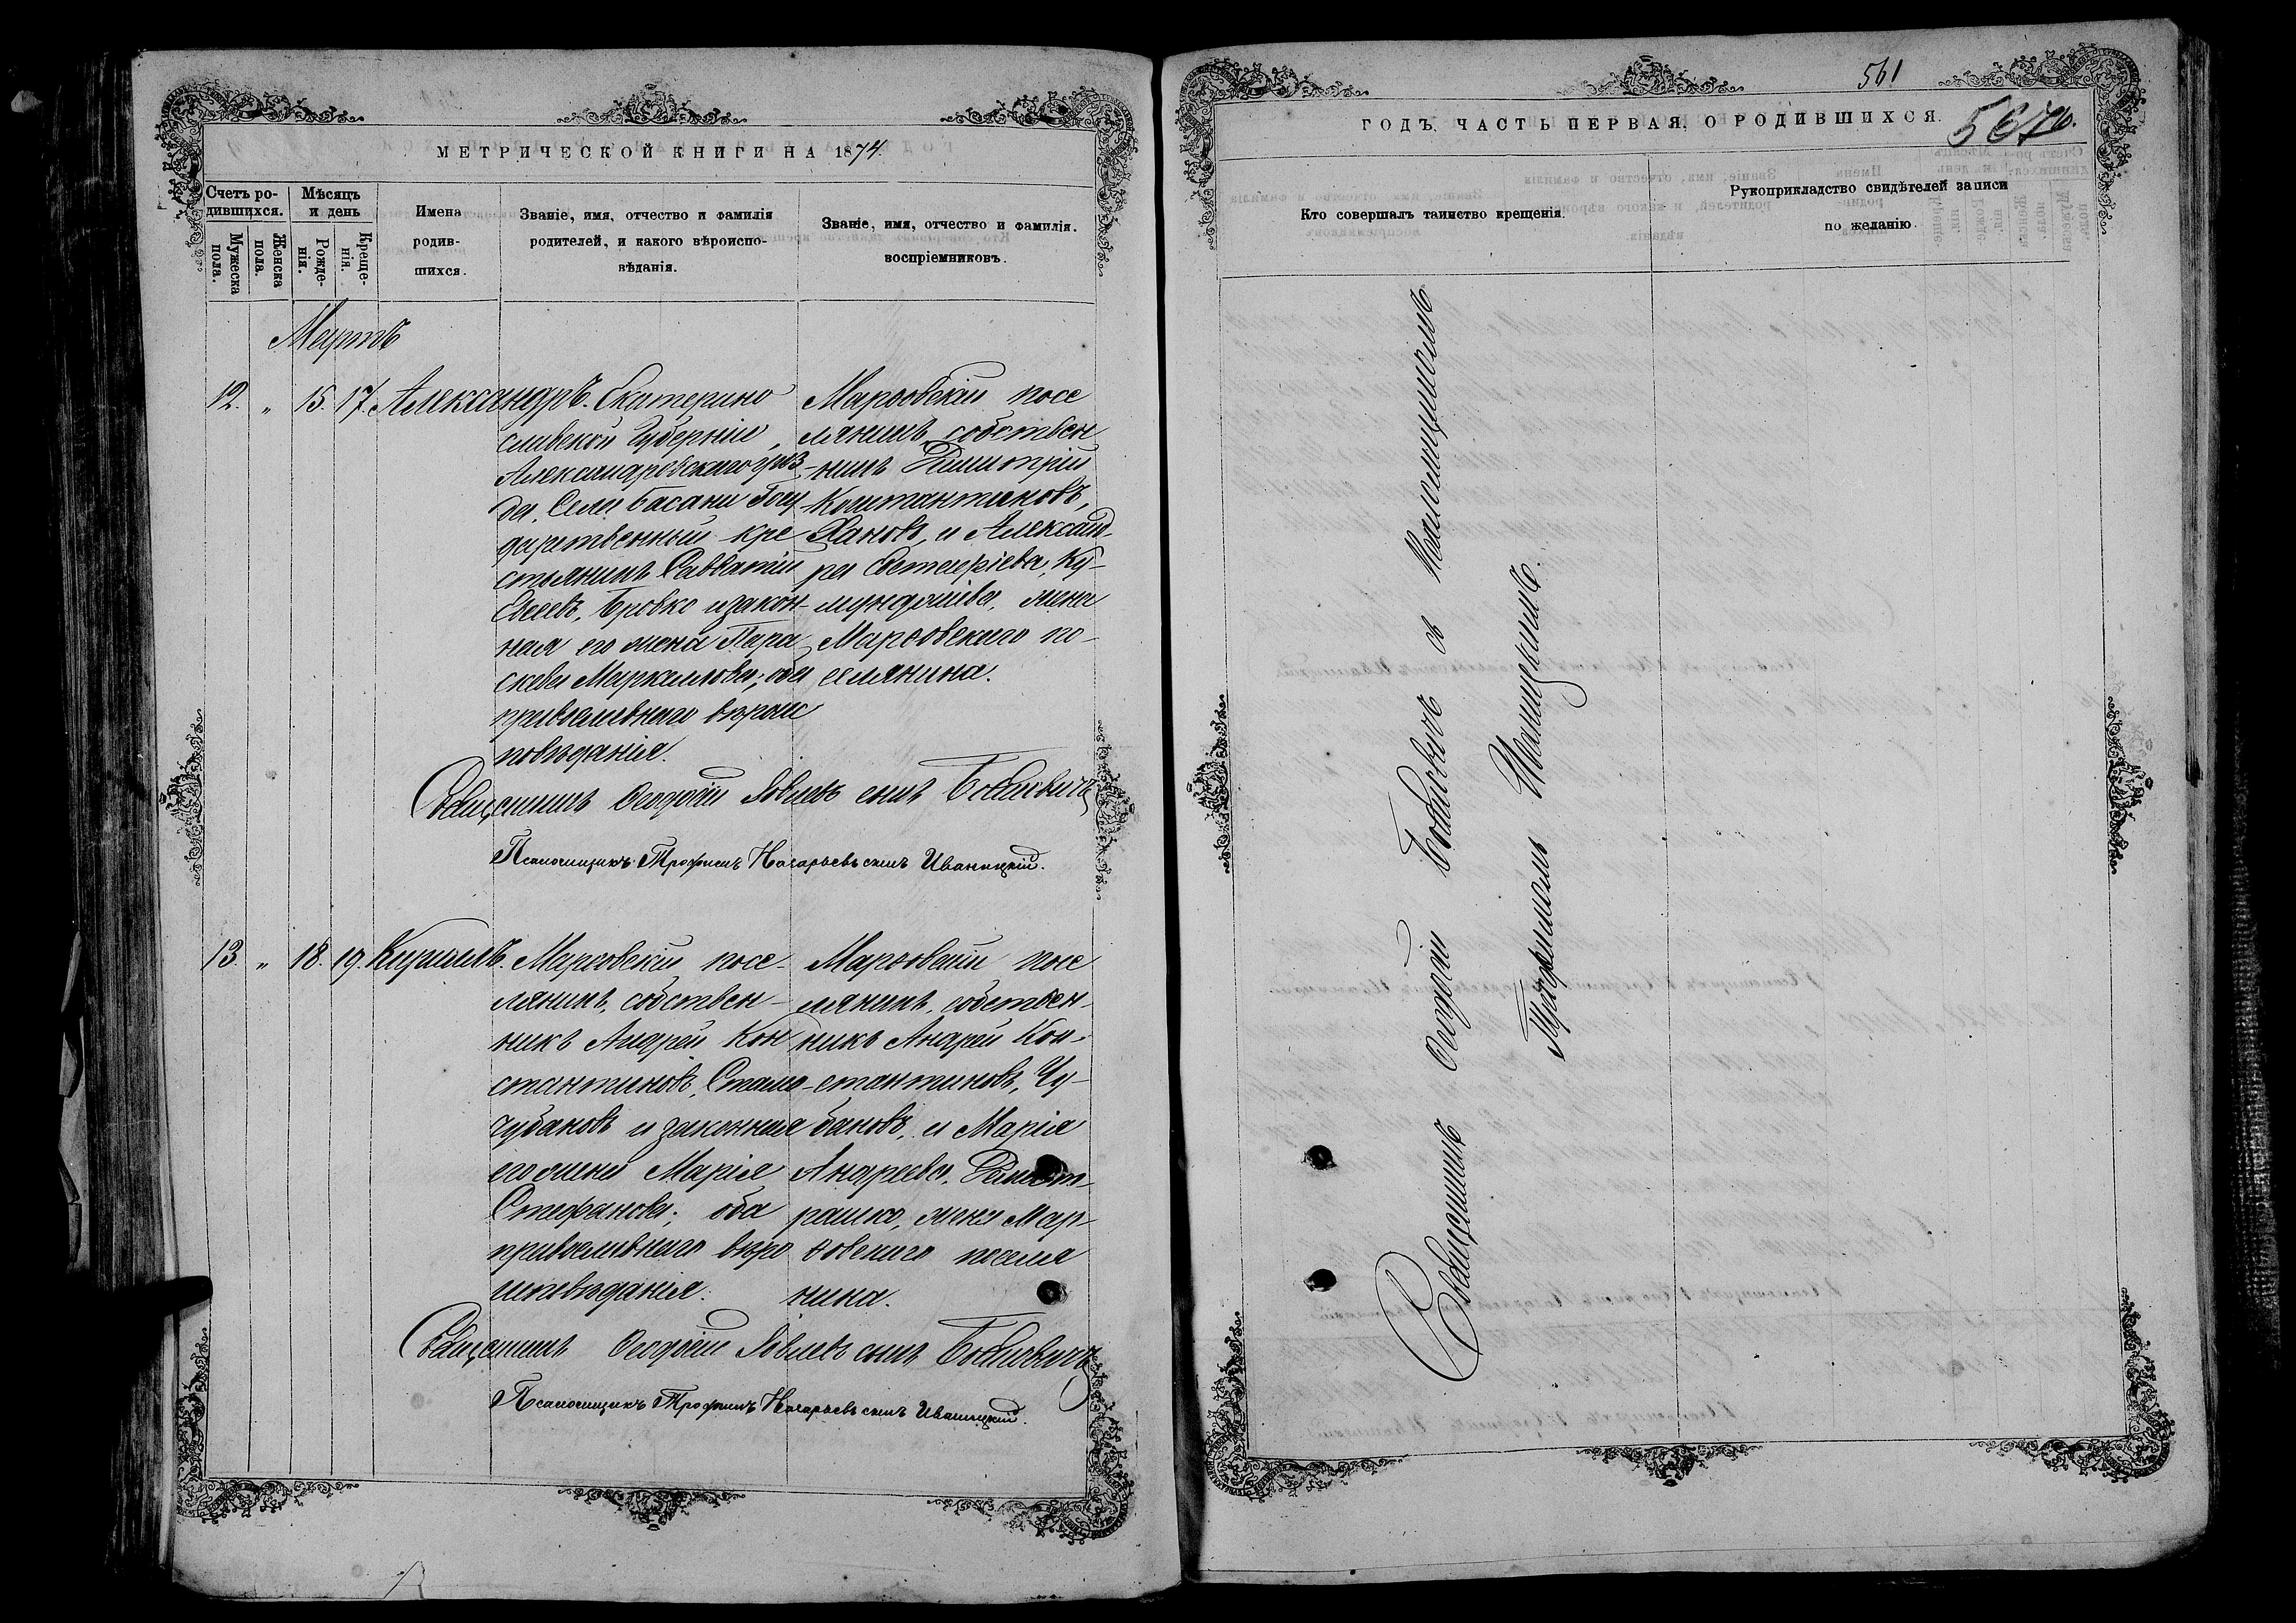 МЕТРИЧЕСКОЙ КНИГИ НА 1874.
Счетъ ро-
дившихся.
Мужеска
пола.
Женска
пола.
Мѣсяцъ
и день
Рожде-
нія.
Креще-
нія.
Имена
родив-
шихся.
Званіе, имя, отчество и фамилія
родителей, и какого вѣроиспо-
вѣданія.
Званіе, имя, отчество и фамилія.
воспріемниковъ.
Мартъ
12. " 15. 17. Александръ.
Екатерино
славской Губерніи,
Александровскаго уѣз
да, Села Басани Госу
дарственный кре
стьянинъ Савватій
Евсеевъ, Бровко и закон-
ная его жена Пара
скева Маркеллова; оба
православнаго вѣроис
повѣданія.
Марфовскій посе
лянинъ, собствен
никъ Димитрій
Константиновъ,
Хановъ, и Александ-
ра Евстафіева, Ку-
мундшіева, жена
Марфовскаго по-
селянина.
Священникъ Ѳеодоръ Іовлевъ сынъ Богдановичъ
Псаломщикъ Трофимъ Назарьевъ сынъ Иваницкій.
13. " 18. 19. Кириллъ.
Марфовскій посе-
лянинъ, собствен-
никъ Андрей Кон
стантиновъ, Стам-
чубановъ и законная
его жена Марія
Стефанова; оба
православнаго вѣро
исповѣданія.
Марфовскій посе
лянинъ, собствен-
никъ Андрей Кон-
стантиновъ, Чу-
бановъ, и Марія
Андреева,
жена Мар-
фовскаго поселя
нина.
Священникъ Ѳеодоръ Іовлевъ сынъ Богдановичъ
Псаломщикъ Трофимъ Назарьевъ сынъ Иваницкій.
561
ГОДЪ. ЧАСТЬ ПЕРВАЯ, О РОДИВШИХСЯ.
Кто совершалъ таинство крещенія.
Рукоприкладство свидѣтелей записи
по желанію.
Священникъ Ѳеодоръ Богдановичъ съ Псаломщикомъ
Трофимомъ Иваницкимъ.